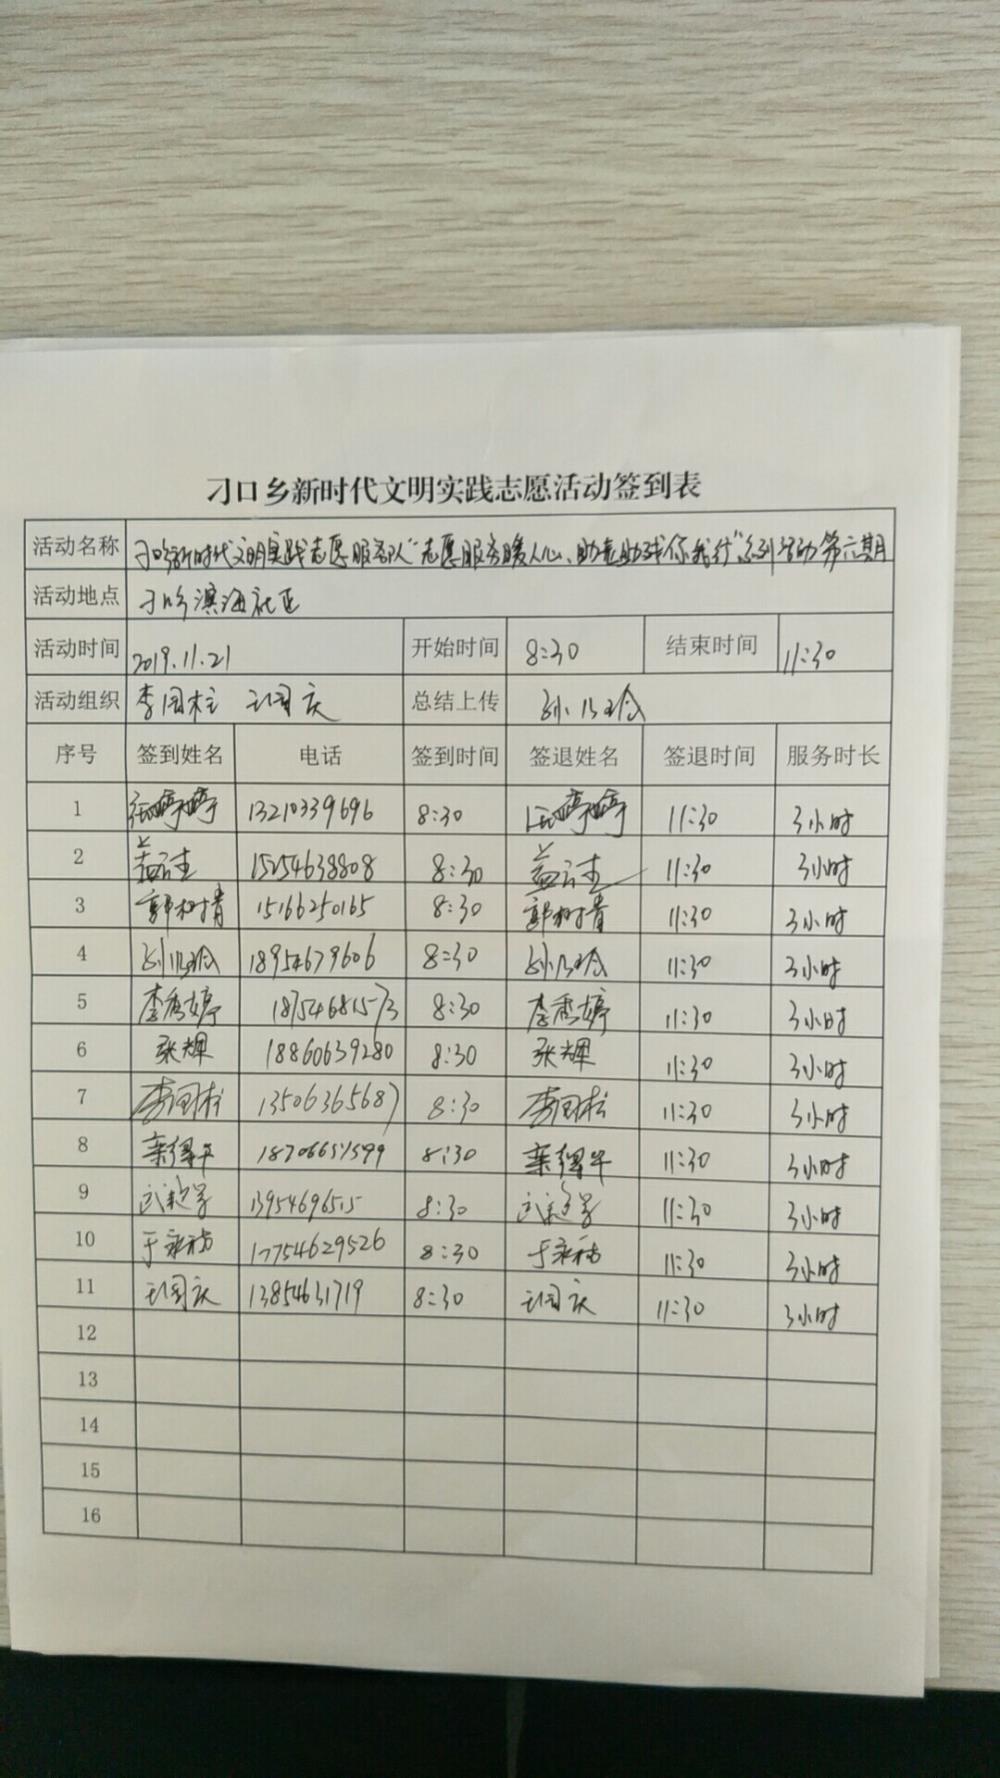 刁口乡新时代文明实践志愿活动签到表
活动名称 刁口乡新时代文明实践志愿服务队"志愿服务暖人心、助老助残你我行"系列活动第六期
活动地点 刁口乡滨海社区
活动时间 2019.11.21 开始时间 8:30 结束时间 11:30
活动组织 李国柱 王国庆 总结上传
序号 签到姓名 电话 签到时间 签退姓名 签退时间 服务时长
1 张婷婷 13210339696 8:30 张婷婷 11:30 3小时
2 15254638808 8:30 11:30 3小时
3 郭树青 15166250165 8:30 郭树青 11:30 3小时
4 18954679606 8:30 11:30 3小时
5 李秀婷 18754681573 8:30 李秀婷 11:30 3小时
6 张辉 18860639280 8:30 张辉 11:30 3小时
7 李国柱 13506365687 8:30 李国柱 11:30 3小时
8 8:30 11:30 3小时
9 13954696515 8:30 11:30 3小时
10 17754629526 8:30 11:30 3小时
11 王国庆 13854631719 8:30 王国庆 11:30 3小时
12
13
14
15
16